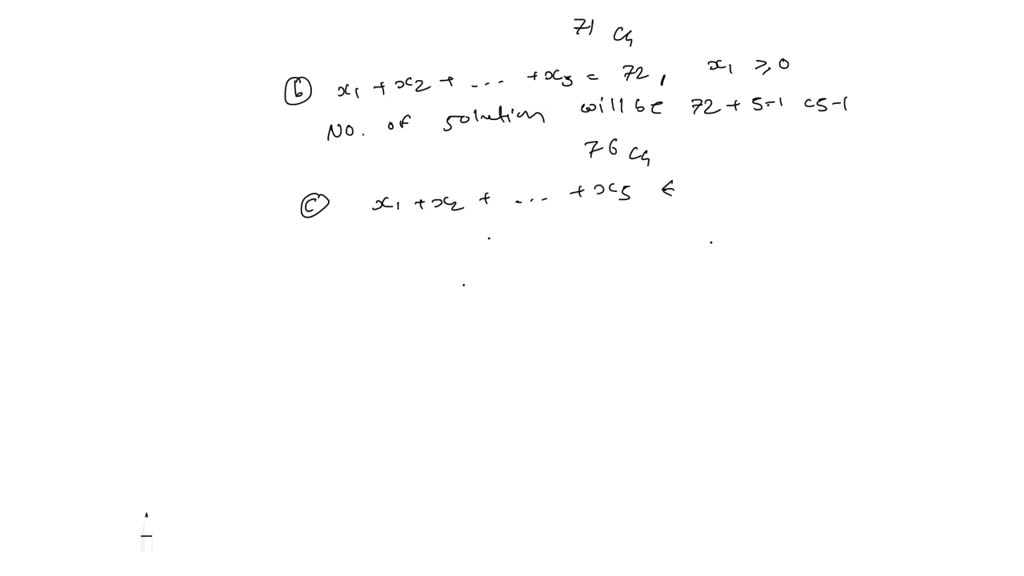 71 C4
(b) x1 + x2 + ... + x5 = 72, x1 ≥ 0
No. of solution will be 72 + 5-1 C5-1
76 C4
(c) x1 + x2 + ... + x5 ≤